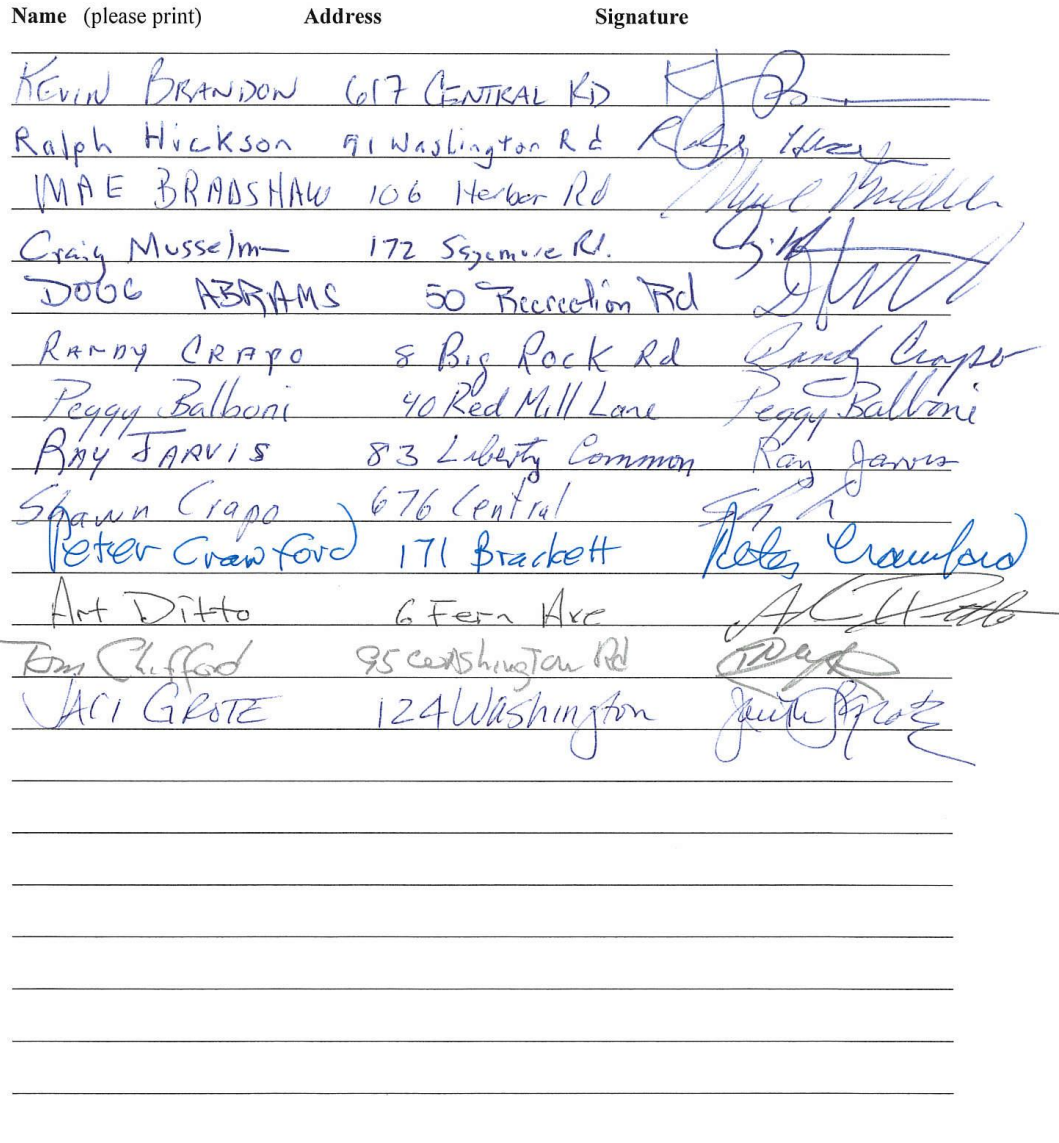 Name (please print) Address Signature
KEVIN BRANDON 617 CENTRAL RD
Ralph Hickson 91 Washington Rd
MAE BRADSHAW 106 Harbor Rd
Craig Musselm 172 Sagamore Rd.
DOUG ABRAMS 50 Recreation Rd
RANDY CRAPO 8 Big Rock Rd Randy Crapo
Peggy Balboni 40 Red Mill Lane Peggy Balboni
RAY JARVIS 83 Liberty Common Ray Jarvis
Shawn Crapo 676 Central
Peter Crawford 171 Brackett Peter Crawford
Art Ditto 6 Fern Ave
Tom Clifford 95 Washington Rd
JACI GROTE 124 Washington